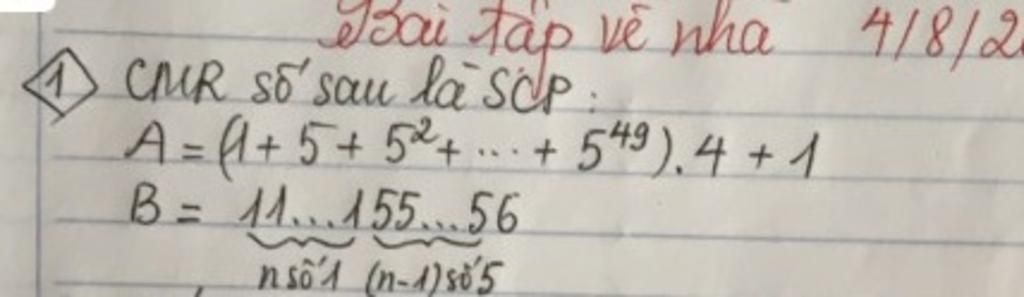 Bài tập về nhà 4/8/2
1 CMR số sau là SCP:
A = (1 + 5 + 5² + ... + 5⁴⁹).4 + 1
B = 11...155...56
n số 1 (n-1) số 5